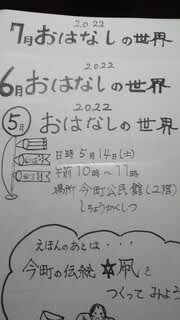 2022
7月おはなしの世界
2022
6月おはなしの世界
2022
5月おはなしの世界
日時 5月14日(土)
午前10時～11時
場所 今町公民館(2階)
しちょうかくしつ
えほんのあとは・・・
今町の伝統 凧と
つくってみよう